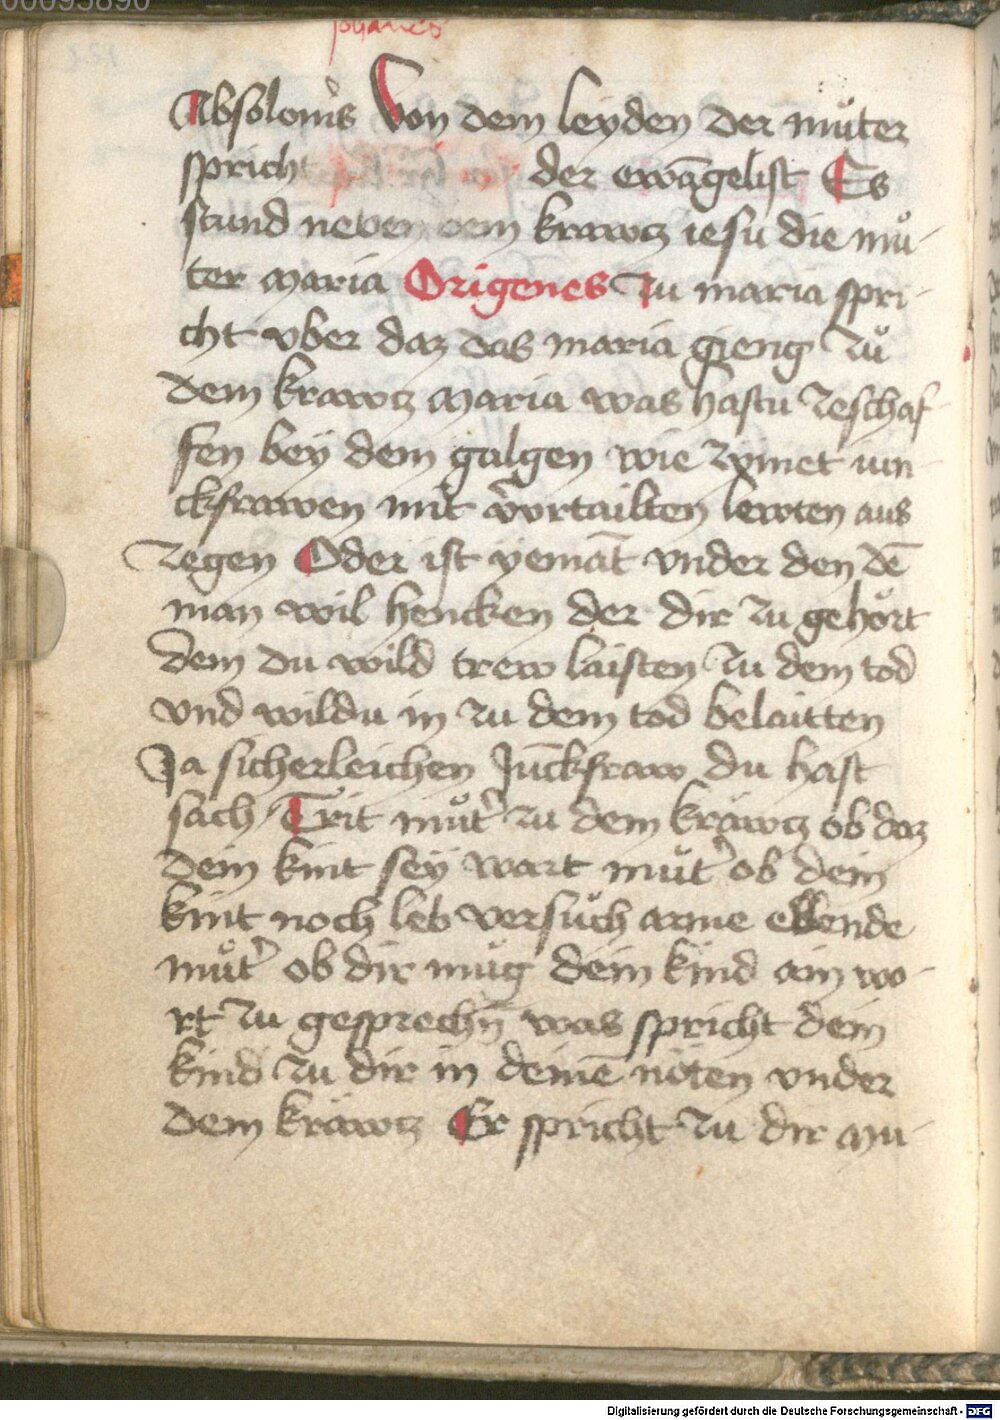 00095890
johanes
Absolonis Von dem leyden der muͦter
spricht der ewāgelist Es
stund neben dem krawtz iesu die muͦ-
ter maria Origenes Zu maria spri-
cht vber daz das maria gieng zuͦ
dem krawtz maria was hastu zeschaf
fen bey dem galgen wie zymet iun-
ckfrawen mit v̾vrtailten lewten aus
zegen Oder ist yemāt vnder den dē
man wil hencken der dir zu gehoͤrt
dem du wild trew laisten zu dem tod
vnd wildu in zu dem tod belaitten
Ja sicherleichen Jūckfraw du hast
sach Trit muͦt̾ zu dem kräwtz ob daz
dein kint sey wart muͦt̾ ob dein
kint noch leb versuͦch arme ellende
muͦt̾ ob dir muͤg dein kind ain wo-
rt zu gesprechn̄ was spricht dein
kind zu dir in deinē nöten vnder
dem kräwtz Er spricht zu dir mu-
Digitalisierung gefördert durch die Deutsche Forschungsgemeinschaft - DFG